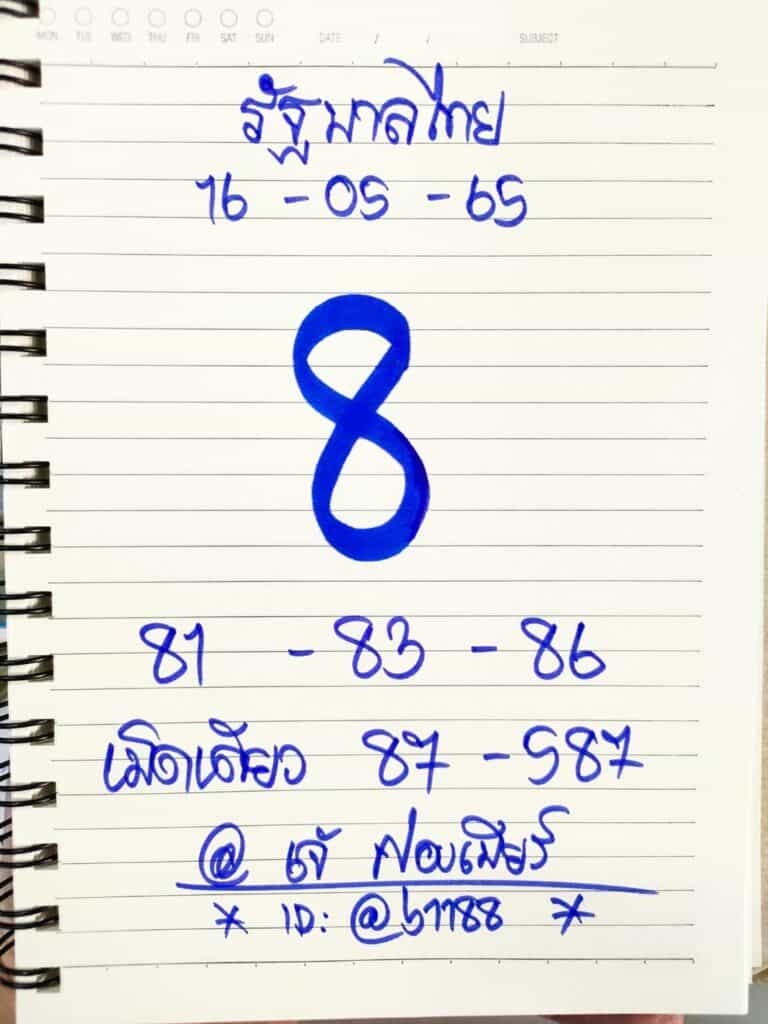 MON TUE WED THU FRI SAT SUN DATE / / SUBJECT
รัฐบาลไทย
16 - 05 - 65
8
81 - 83 - 86
เม็ดเดียว 87 - 587
@ เจ้ ฟองเบียร์
* ID: @b1188 *